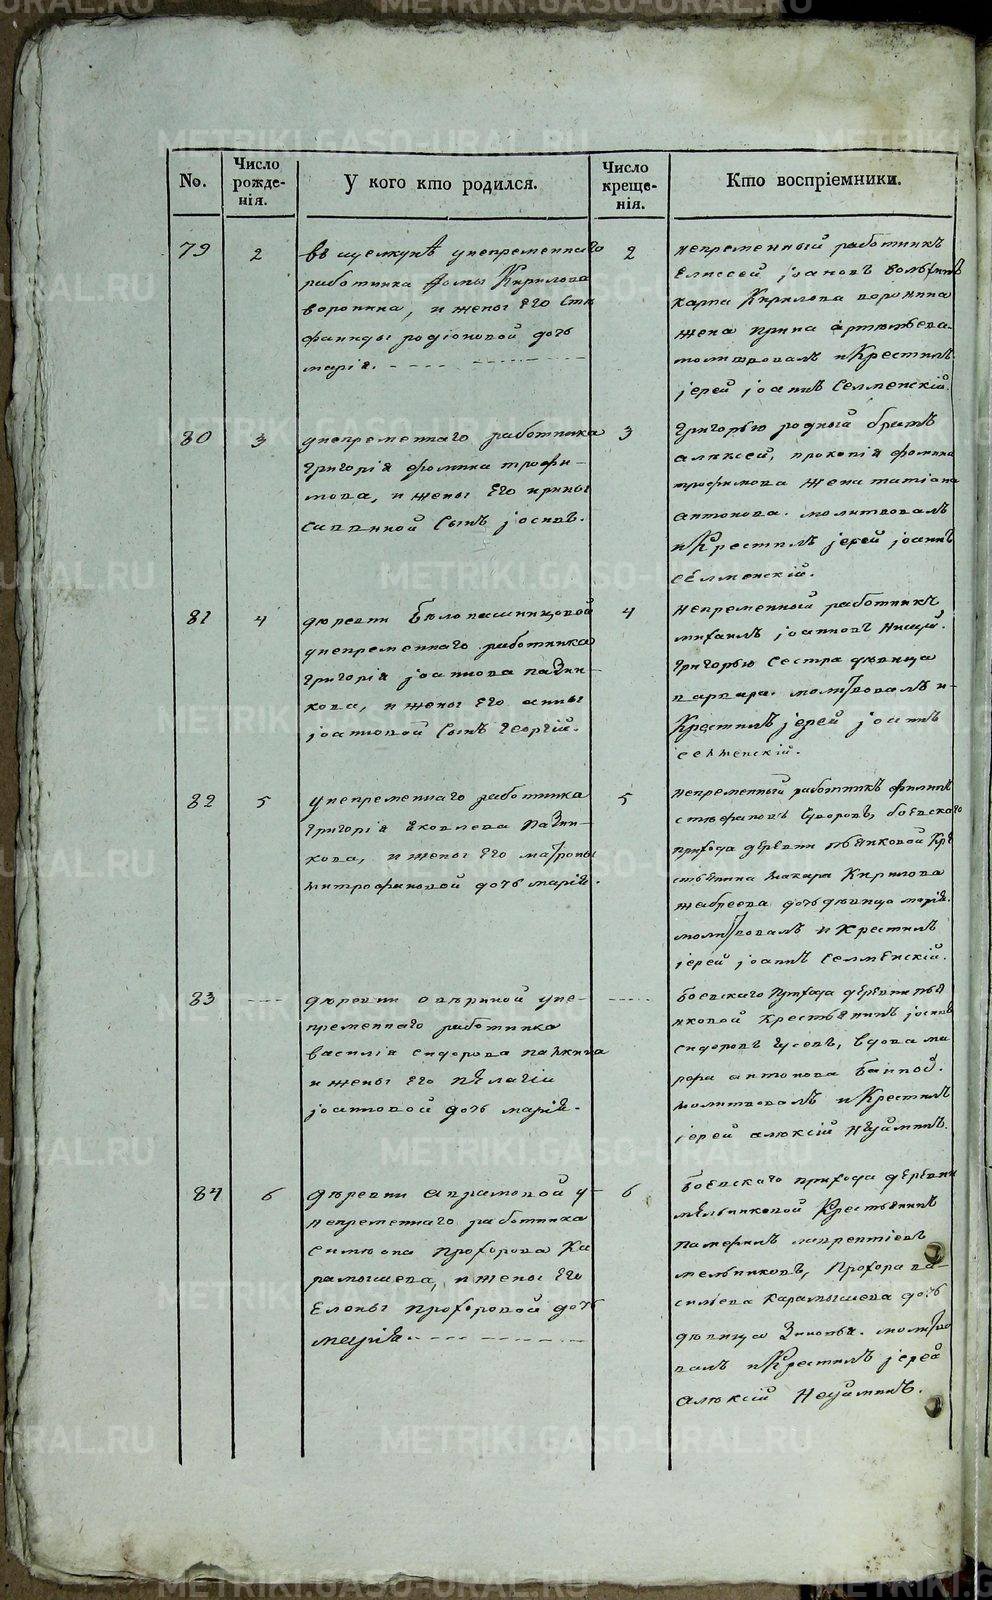 METRIKI.GASO-URAL.RU
No.
Число рожденія.
У кого кто родился.
Число крещенія.
Кто воспріемники.
79
2
въ щелкунѣ унепременнаго
работника Фомы Кирилова
воронина, и жены Его Сте
фаниды родіоновой дочь
марія.
2
непременный работникъ
Елисей іоановъ
карпа Кирилова воронина
жена ирина артемьева
молитвовалъ и Крестилъ
іерей іоаннъ Селменскій.
80
3
унепременнаго работника
григорія фомина трофи-
мова, и жены Его ирины
саввиной Сынъ іосифъ.
3
григорью родный братъ
алексей, прокопія фомина
трофимова жена татіана
антонова. молитвовалъ
и Крестилъ іерей іоаннъ
сЕлменскій.
81
4
деревни Белопашинцовой
унепременнаго работника
григорія іоаннова
кова, и жены Его анны
іоанновой Сынъ георгій.
4
непременный работникъ
михаилъ іоанновъ
григорью Сестра девица
варвара. молитвовалъ и
Крестилъ іерей іоаннъ
селменскій.
82
5
унепременнаго работника
григорія яковлева
кова, и жены Его матроны
митрофановой дочь марія.
5
непременный работникъ филипъ
стефановъ Суворовъ, боевскаго
прихода деревни пьянковой Кре
стьянина макара Кирилова
жабреева дочь девица марія.
молитвовалъ и крестилъ
іерей іоаннъ Селменскій.
83
деревни авериной уне-
пременнаго работника
василія сидорова
и жены Его пелагіи
іоанновой дочь марія.
Боевскаго Прихода деревни пья
нковой Крестьянинъ іоаннъ
сидоровъ Гусевъ, вдова ма
антонова
молитвовалъ и Крестилъ
іерей алексій Неуйминъ.
84
6
деревни аврамовой у-
непременнаго работника
симеона прохорова Ка
рамышева, и жены Его
Елены прохоровой дочь
марія.
6
Боевскаго прихода деревни
мельниковой Крестьянинъ
памфилъ лаврентіевъ
мельниковъ, Прохора ва-
сильева карамышева дочь
девица Зиновья. молитво
валъ и Крестилъ іерей
алексій Неуйминъ.